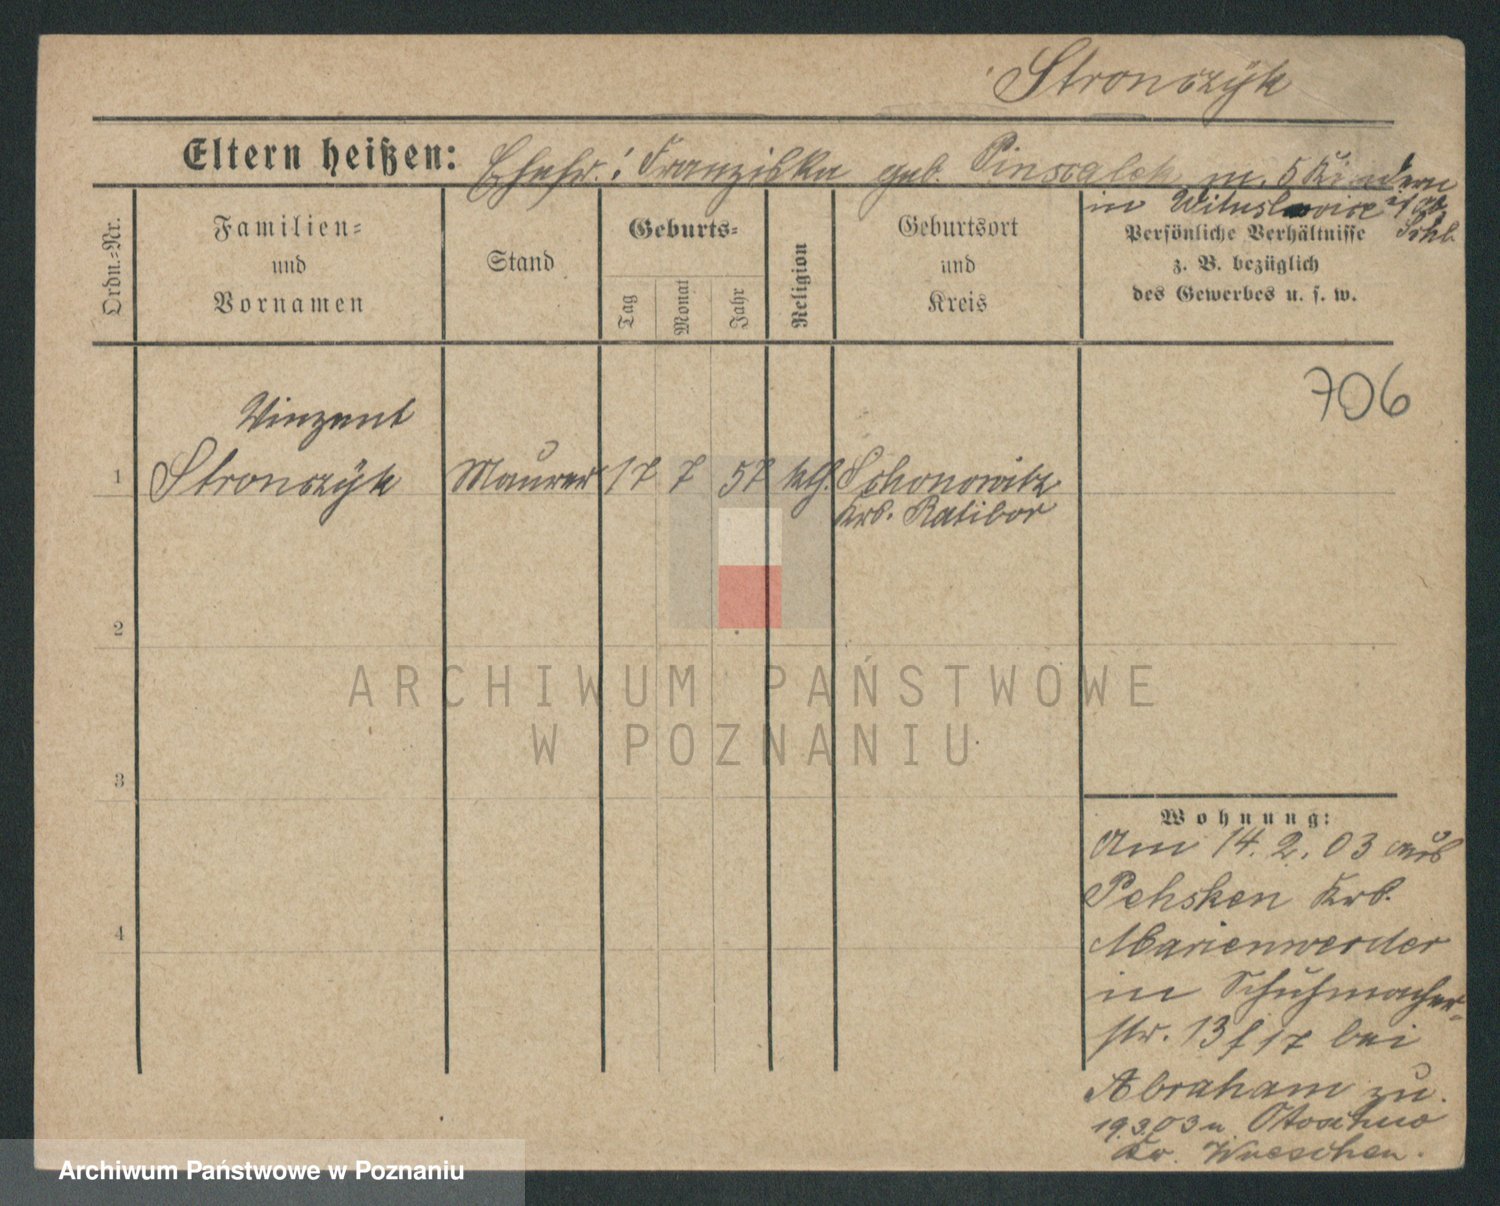 Stronczÿk
Eltern heißen: Ehefr.: Franziska geb. m. 5 Kindern
in
Ordn.-Nr.
Familien-
und
Vornamen
Stand
Geburts-
Tag
Monat
Jahr
Religion
Geburtsort
und
Kreis
Persönliche Verhältnisse
z. B. bezüglich
des Gewerbes u. s. w.
706
Vinzent
1 Stronczÿk Maurer 17 7 57 kth. Schonowitz
Krs. Ratibor
2
3
4
Wohnung:
Am 14. 2. 03 aus
Pehsken Krs.
Marienwerder
in Schuhmacher-
str. 13 f 17 bei
Abraham zu.
19.3.03 n. Otoschno
Kr. Wreschen.
ARCHIWUM PAŃSTWOWE
W POZNANIU
Archiwum Państwowe w Poznaniu